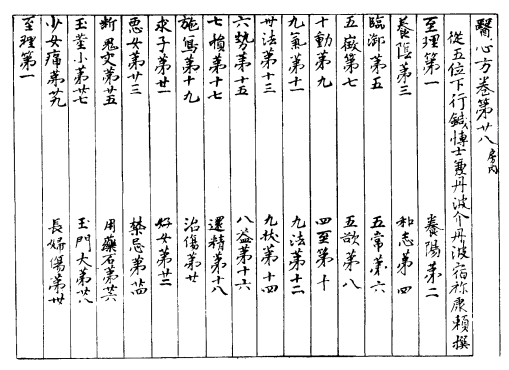 醫心方卷第廿八 房內
從五位下行鍼博士兼丹波介丹波宿祢康賴撰
至理第一 養陽第二
養陰第三 和志第四
臨御第五 五常第六
五徵第七 五欲第八
十動第九 四至第十
九氣第十一 九法第十二
卅法第十三 九狀第十四
六勢第十五 八益第十六
七損第十七 還精第十八
施寫第十九 治傷第廿
求子第廿一 好女第廿二
惡女第廿三 禁忌第廿四
斷鬼交第廿五 用藥石第廿六
玉莖小第廿七 玉門大第廿八
少女痛第廿九 長婦傷第卅
至理第一